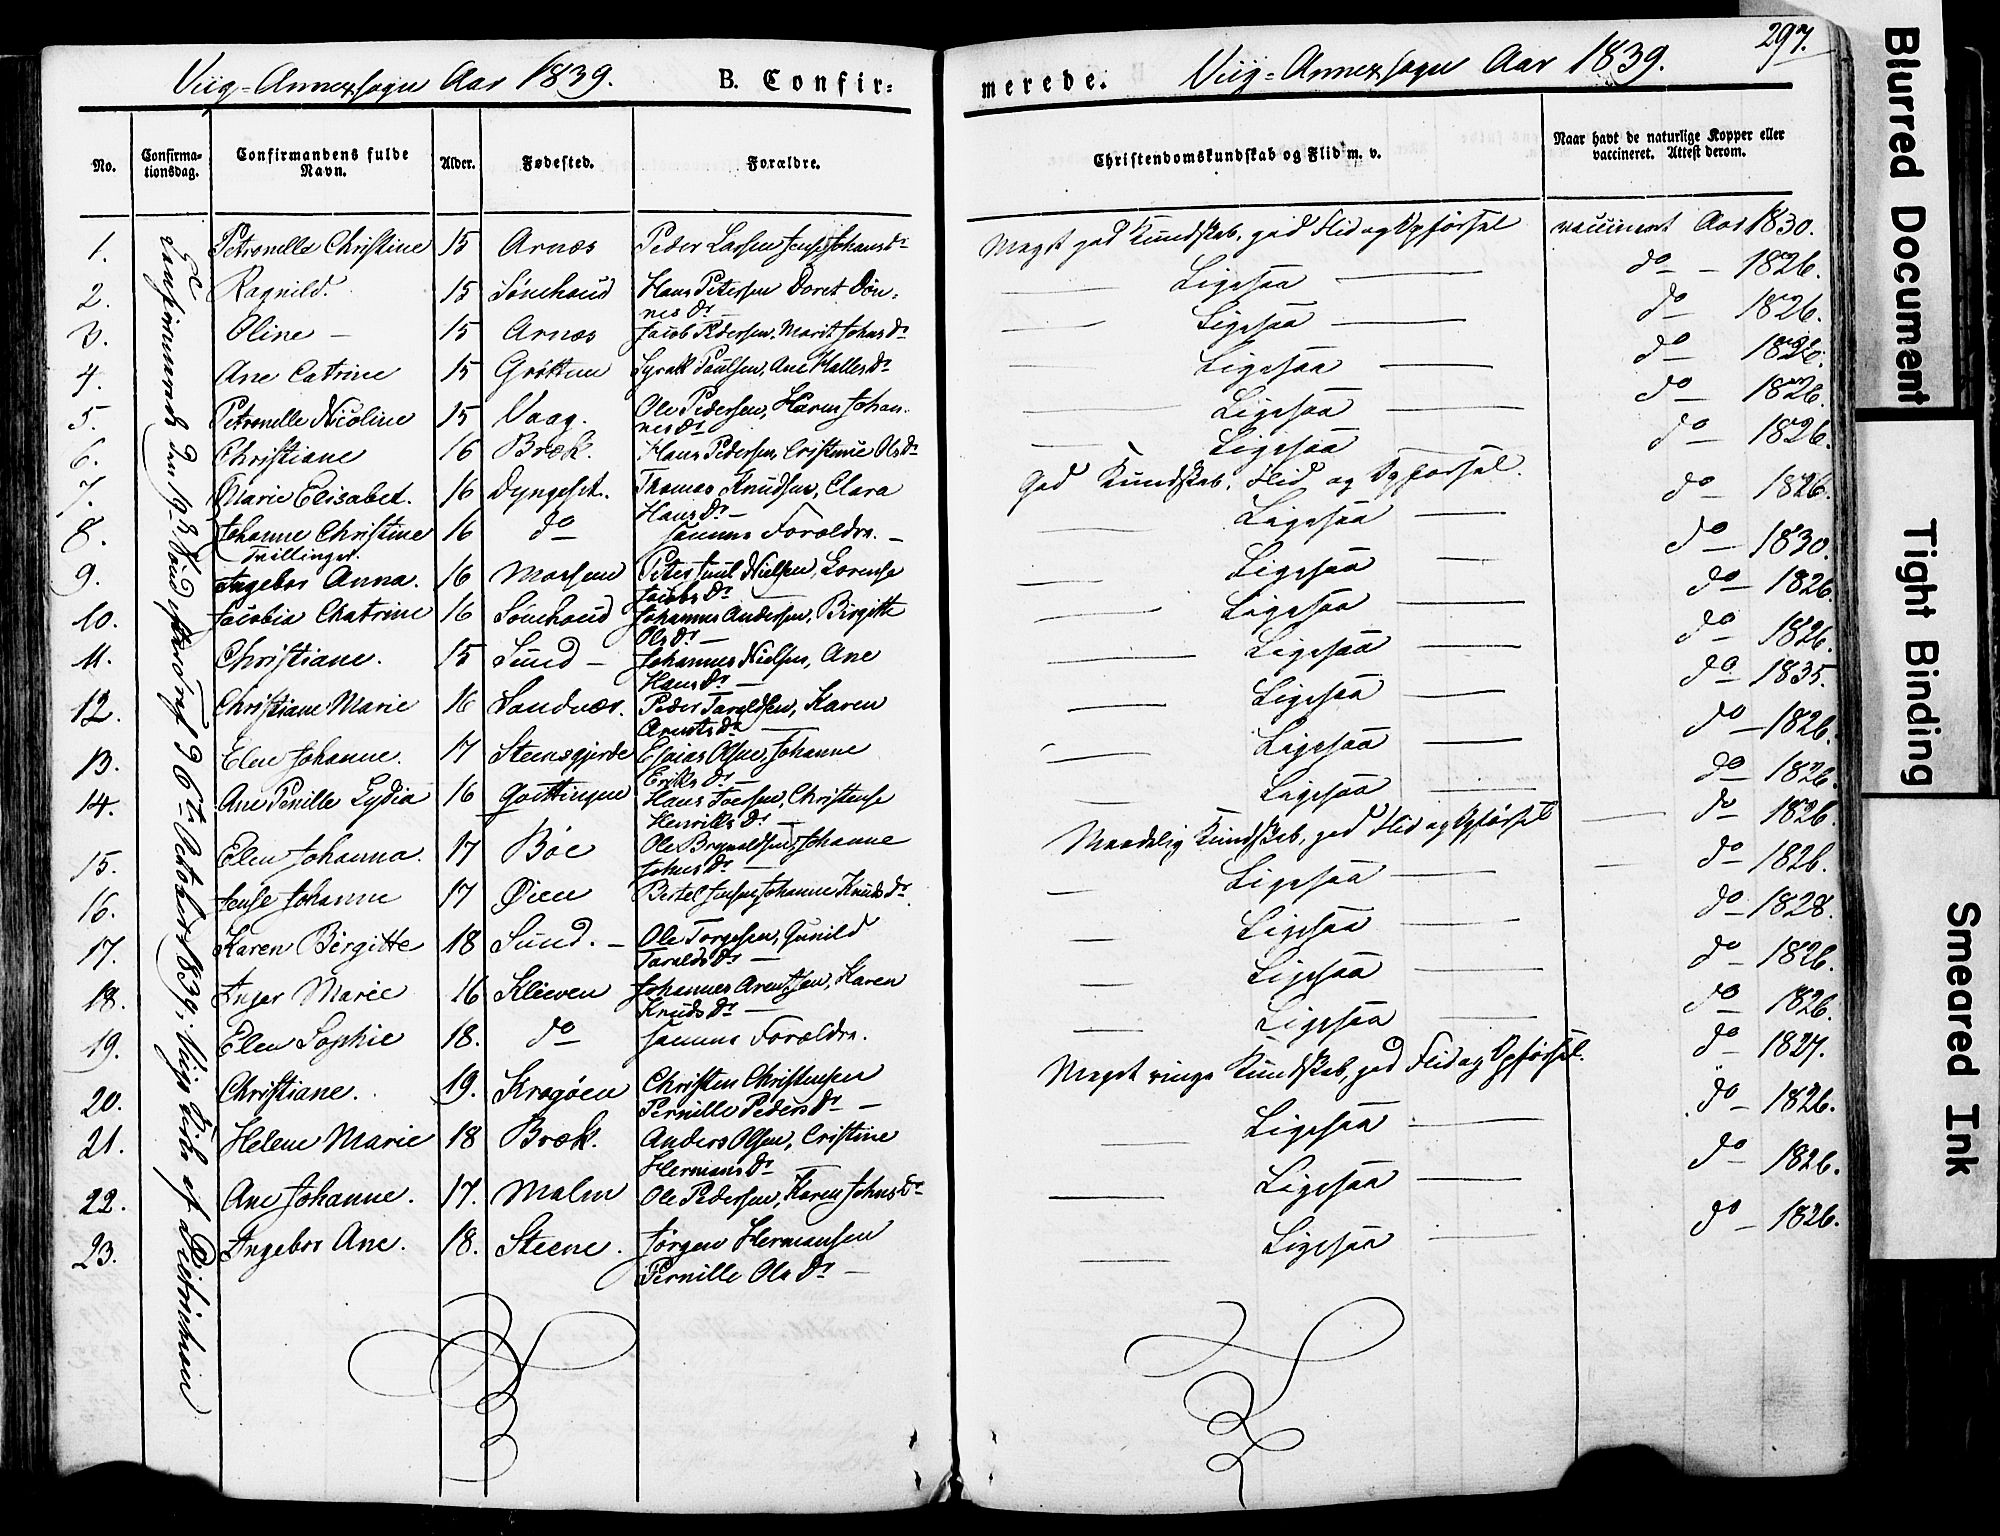 Viig-Annexsogn Aar 1839. B. Confir=
No. Confirma-tionsdag. Confirmandens fulde Navn. Alder. Fødested. Forældre.
1. Petronelle Christine 15 Arnæs Peder Larsen Johansdr
2. Ragnild. 15 Hans Petersen Doret Dön=
nesdr
3. Oline – 15 Arnæs Jacob Pedersen, Marit Johnsdr
4. Ane Catrine 15 Gröttum Syrak Paulsen, Ane Hallesdr
5. Petronelle Nicoline 15 Vaag. Ole Pedersen, Maren Johan-
nesdr
6. Christiane 16 Bræk. Hans Pedersen, Cristine Olsdr
7. Marie Elisabet. 16 Dyngeset. Thomas Knudsen, Clara
Hansdr –
8. Johanne Christine 16 do Samme Forældre. –
Tvillinger.
9. Ingebor Anna. 16 Peter Juul Nielsen, Lorense
Jacobsdr –
10. Jacobia Chatrine 16 Johannes Andersen, Birgitte
Olsdr –
11. Christiane. 15 Sund – Johannes Nielsen, Ane
Hansdr –
12. Christiane Marie 16 Sandvær. Peder Taraldsen, Karen
Arntsdr –
13. Elen Johanne. 17 Steensgjerde Esaias Olsen, Johanne
Eriksdr –
14. Ane Pernille Lydia 16 Hans Christense
Henriksdr –
15. Elen Johanna. 17 Böe Ole Brynaldsen, Johanne
Johnsdr –
16. Johanne 17 Öien Bertel Jensen, Johanne Knudsdr.
17. Karen Birgitte 18 Sund. – Ole Torgesen, Gunild
Taraldsdr –
18. Inger Marie 16 Kleeven Johannes Arentsen, Karen
Knudsdr –
19. Elen Sophie 18. do Samme Forældre.
20. Christiane. 19. Kragöen Christen Christensen
Pernille Pedersdr –
21. Helene Marie 18 Bræk. Anders Olsen, Cristine
Hermansdr
22. Ane Johanne. 17. Malm Ole Pedersen, Karen Johnsdr
23. Ingebor Ane. 18. Steene. Jörgen Hermansen
Pernille Olsdr –
Confirmerede den 19de Sönd. efter Tref. 9 6te October 1839, i Viigs Kirke af Dietrichson
297.
merede. Viig-Annexsogn Aar 1839.
Christendomskundskab og Flid m. v. Naar havt de naturlige Kopper eller vaccineret. Attest derom.
Meget god Kundskab, god Flid og Opførsel vaccineret Aar 1830.
Ligesaa do – 1826.
Ligesaa do – 1826.
Ligesaa do – 1826.
Ligesaa do – 1826.
Ligesaa do – 1826.
God Kundskab, Flid og Opførsel. do – 1826.
Ligesaa do – 1830.
Ligesaa do – 1826.
Ligesaa do – 1826.
Ligesaa do 1835.
Ligesaa do – 1826.
Ligesaa do – 1826.
Ligesaa do – 1826.
Maadelig Kundskab, god Flid og Opførsel do – 1826.
Ligesaa do – 1828.
Ligesaa do – 1826.
Ligesaa do – 1826.
Ligesaa do – 1827.
Meget ringe Kundskab, god Flid og Opførsel. do – 1826.
Ligesaa do – 1826.
Ligesaa do – 1826.
Ligesaa
Blurred Document
Tight Binding
Smeared Ink